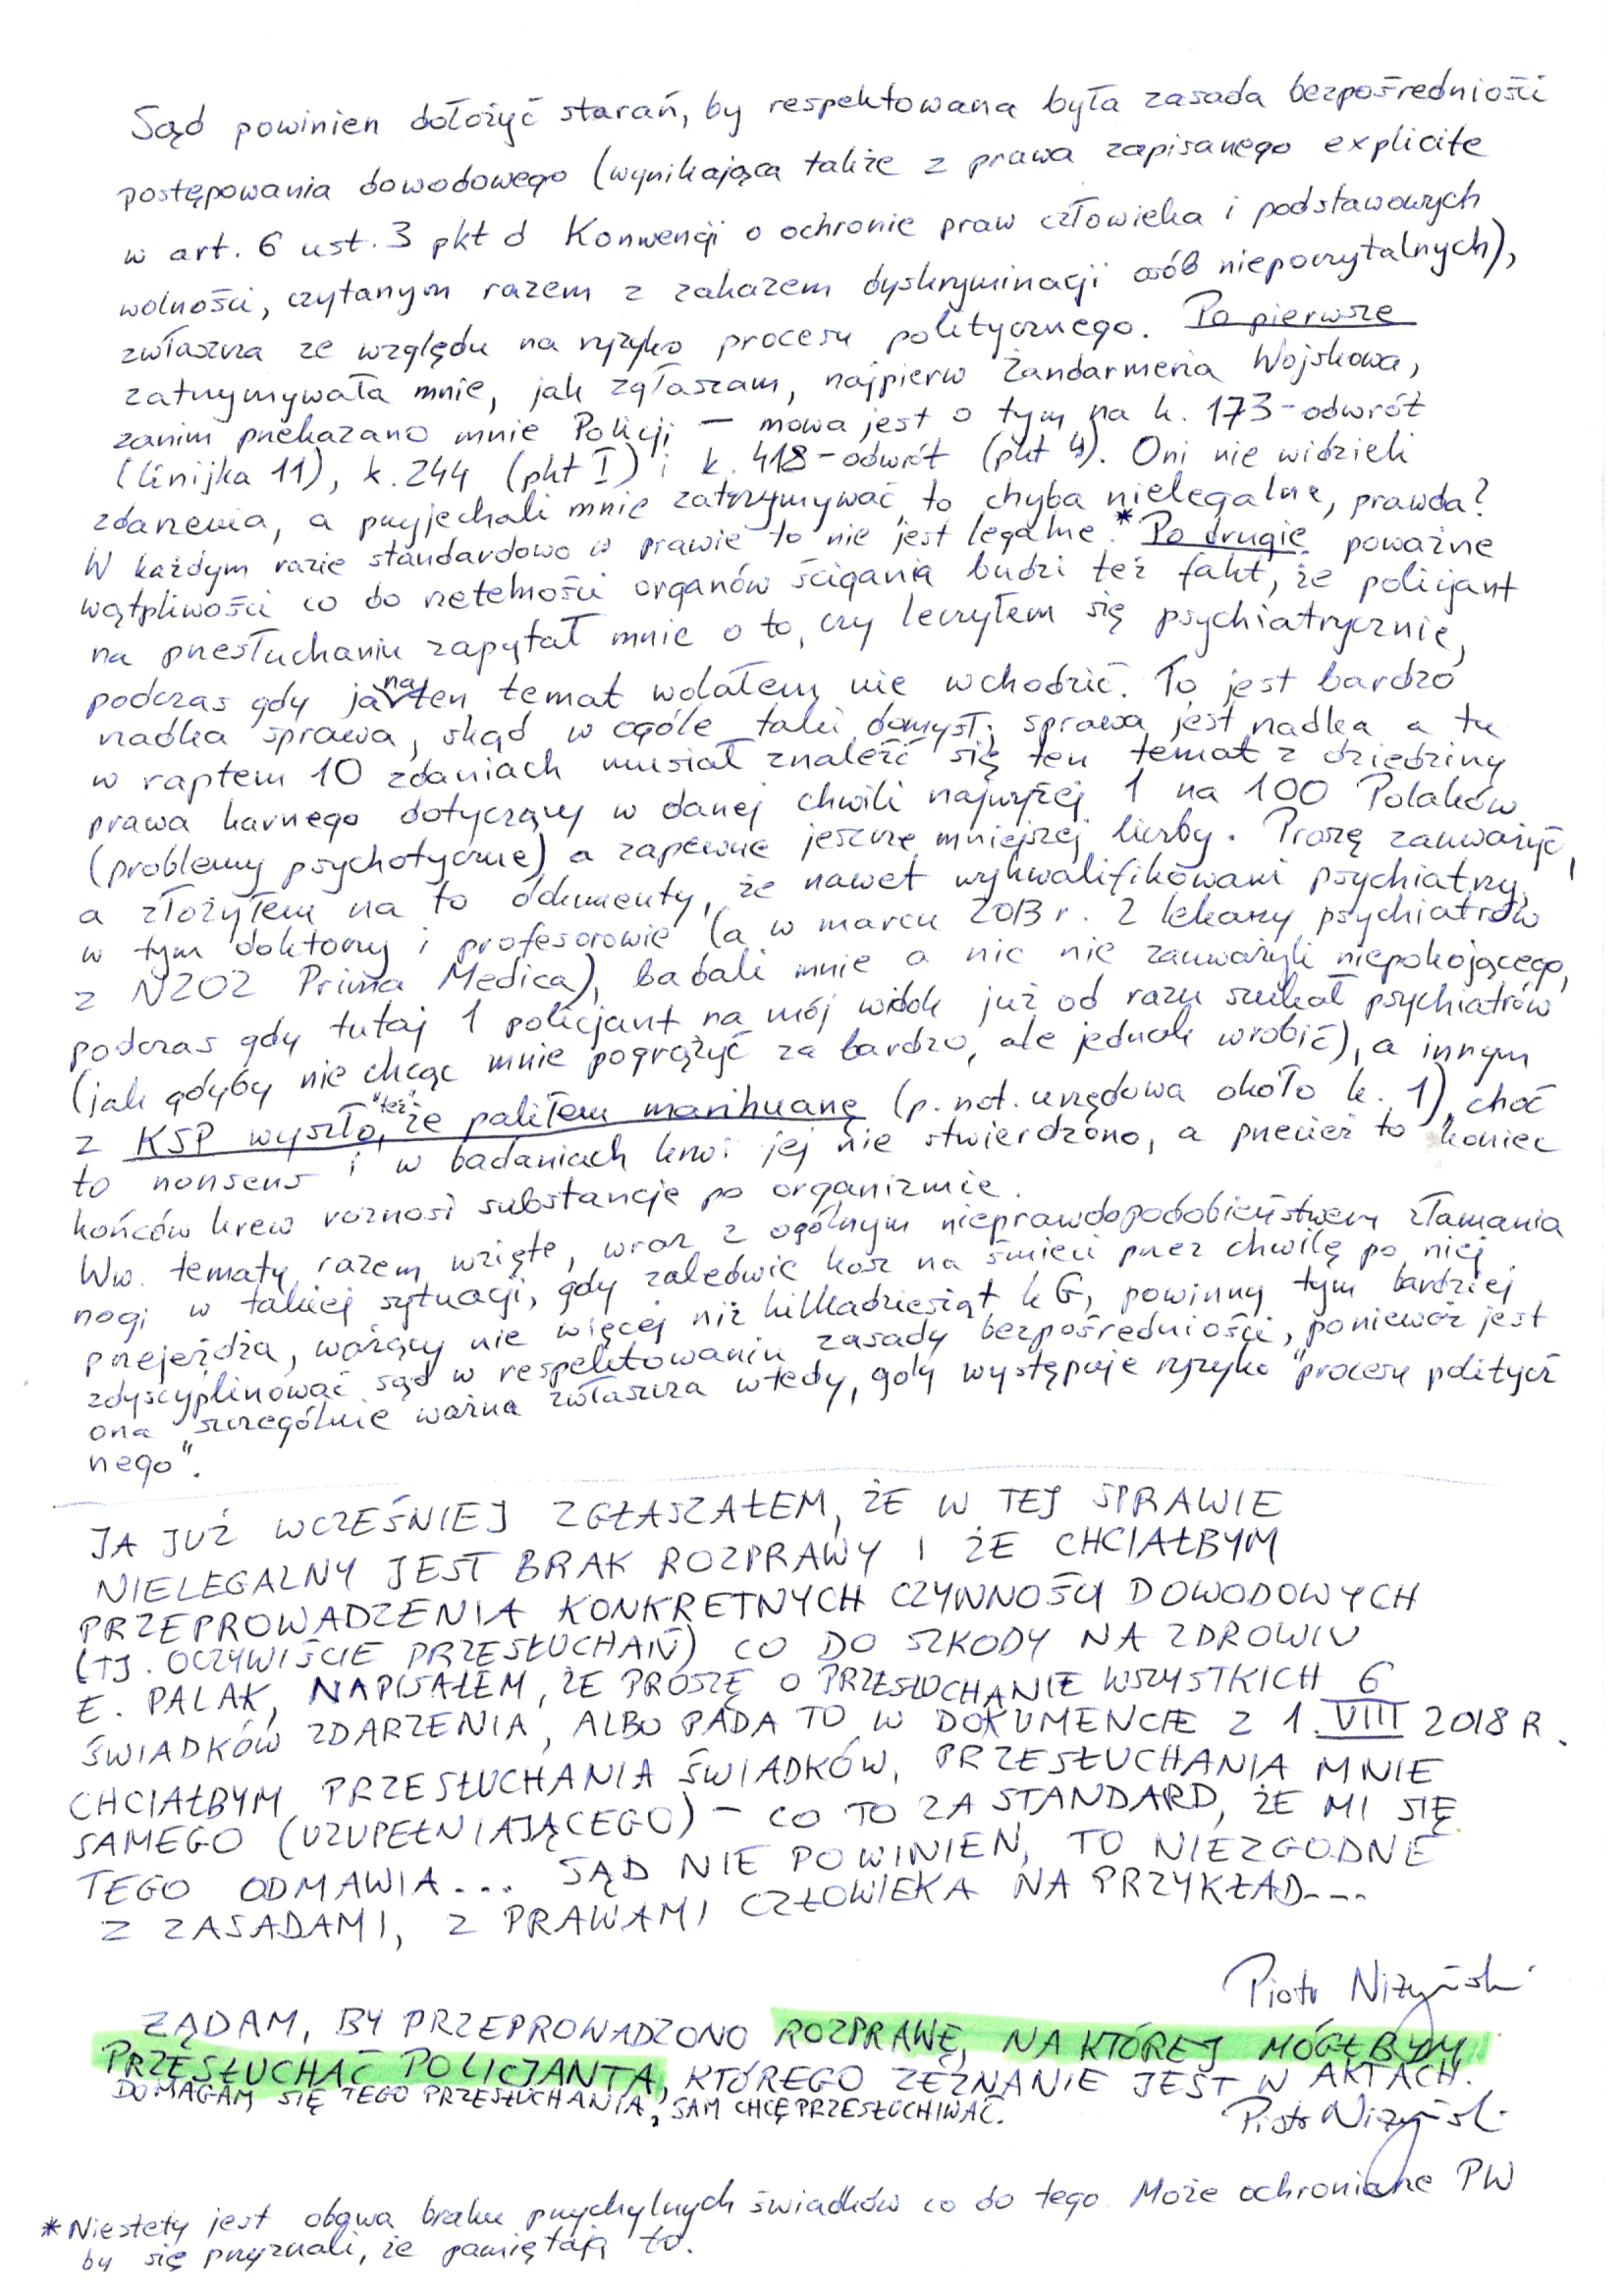 Sąd powinien dołożyć starań, by respektowana była zasada bezpośredniości
postępowania dowodowego (wynikająca także z prawa zapisanego explicite
w art. 6 ust. 3 pkt d Konwencji o ochronie praw człowieka i podstawowych
wolności, czytanym razem z zakazem dyskryminacji osób niepoczytalnych),
zwłaszcza ze względu na ryzyko procesu politycznego. Po pierwsze
zatrzymywała mnie, jak zgłaszam, najpierw Żandarmeria Wojskowa,
zanim przekazano mnie Policji – mowa jest o tym na k. 173-odwrót
(linijka 11), k. 244 (pkt I) i k. 418-odwrót (pkt 4). Oni nie widzieli
zdarzenia, a przyjechali mnie zatrzymywać, to chyba nielegalne, prawda?
W każdym razie standardowo w prawie to nie jest legalne.* Po drugie poważne
wątpliwości co do rzetelności organów ścigania budzi też fakt, że policjant
na przesłuchaniu zapytał mnie o to, czy leczyłem się psychiatrycznie,
podczas gdy ja na ten temat wolałem nie wchodzić. To jest bardzo
rzadka sprawa, skąd w ogóle taki domysł; sprawa jest rzadka a tu
w raptem 10 zdaniach musiał znaleźć się ten temat z dziedziny
prawa karnego dotyczący w danej chwili najwyżej 1 na 100 Polaków
(problemy psychotyczne) a zapewne jeszcze mniejszej liczby. Proszę zauważyć,
a złożyłem na to dokumenty, że nawet wykwalifikowani psychiatrzy,
w tym doktorzy i profesorowie (a w marcu 2013 r. 2 lekarzy psychiatrów
z NZOZ Prima Medica), badali mnie a nic nie zauważyli niepokojącego,
podczas gdy tutaj 1 policjant na mój widok już od razu szukał psychiatrów
(jak gdyby nie chcąc mnie pogrążyć za bardzo, ale jednak wrobić), a innym
z KSP wyszło "też", że paliłem marihuanę (p. not. urzędowa około k. 1), choć
to nonsens i w badaniach krwi jej nie stwierdzono, a przecież to koniec
końców krew roznosi substancje po organizmie.
Ww. tematy razem wzięte, wraz z ogólnym nieprawdopodobieństwem złamania
nogi w takiej sytuacji, gdy zaledwie kosz na śmieci przez chwilę po niej
przejeżdża, ważący nie więcej niż kilkadziesiąt kG, powinny tym bardziej
zdyscyplinować sąd w respektowaniu zasady bezpośredniości, ponieważ jest
ona szczególnie ważna zwłaszcza wtedy, gdy występuje ryzyko "procesu politycz
nego".
JA JUŻ WCZEŚNIEJ ZGŁASZAŁEM, ŻE W TEJ SPRAWIE
NIELEGALNY JEST BRAK ROZPRAWY I ŻE CHCIAŁBYM
PRZEPROWADZENIA KONKRETNYCH CZYNNOŚCI DOWODOWYCH
(TJ. OCZYWIŚCIE PRZESŁUCHAŃ) CO DO SZKODY NA ZDROWIU
E. PALAK, NAPISAŁEM, ŻE PROSZĘ O PRZESŁUCHANIE WSZYSTKICH 6
ŚWIADKÓW ZDARZENIA, ALBO PADA TO W DOKUMENCIE Z 1 VIII 2018 R.
CHCIAŁBYM PRZESŁUCHANIA ŚWIADKÓW, PRZESŁUCHANIA MNIE
SAMEGO (UZUPEŁNIAJĄCEGO) – CO TO ZA STANDARD, ŻE MI SIĘ
TEGO ODMAWIA... SĄD NIE POWINIEN, TO NIEZGODNE
Z ZASADAMI, Z PRAWAMI CZŁOWIEKA NA PRZYKŁAD...
Piotr Niżyński
ŻĄDAM, BY PRZEPROWADZONO ROZPRAWĘ, NA KTÓREJ MÓGŁBYM
PRZESŁUCHAĆ POLICJANTA, KTÓREGO ZEZNANIE JEST W AKTACH.
DOMAGAM SIĘ TEGO PRZESŁUCHANIA, SAM CHCĘ PRZESŁUCHIWAĆ.
Piotr Niżyński
* Niestety jest obawa braku przychylnych świadków co do tego. Może ochroniarze PW
by się przyznali, że pamiętają to.